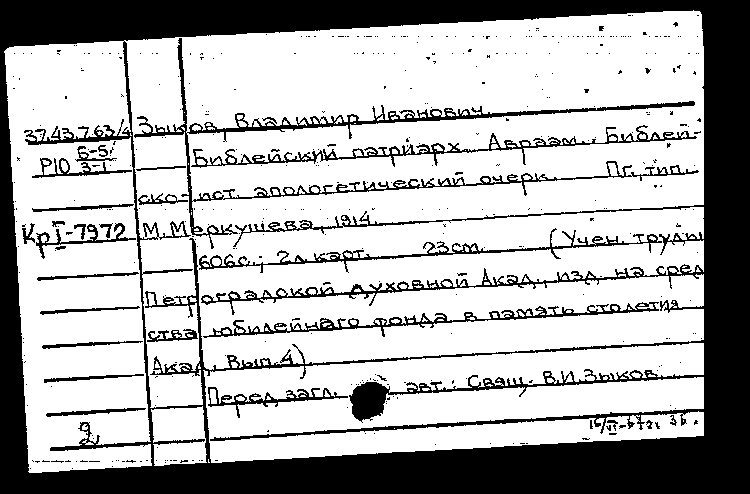 37.43.7.63/4 Зыков, Владимир Иванович.
Р10 Б-5/3-1 Библейский патриарх Авраам. Библей-
ско-ист. апологетический очерк. Пг., тип.
Кр I-7972 М. Меркушева, 1914.
606с.; 2л. карт. 23см. (Учен. труды
Петроградской духовной Акад., изд. на сред
ства юбилейного фонда в память столетия
Акад. Вып. 4)
Перед загл. авт.: Свящ. В.И. Зыков.
2
16/VI-67г. зк.